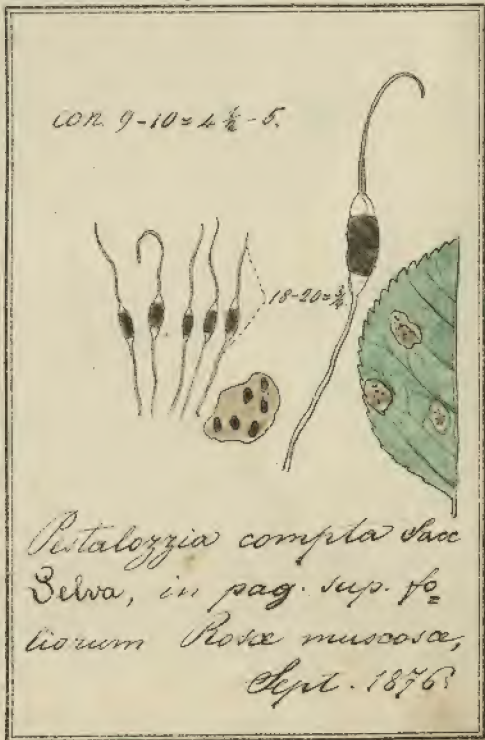 con. 9-10=4½-5.
18-20=¾
Pestalozzia compta Sacc
Selva, in pag. sup. fo=
liorum Rosæ muscosæ,
Sept. 1876.